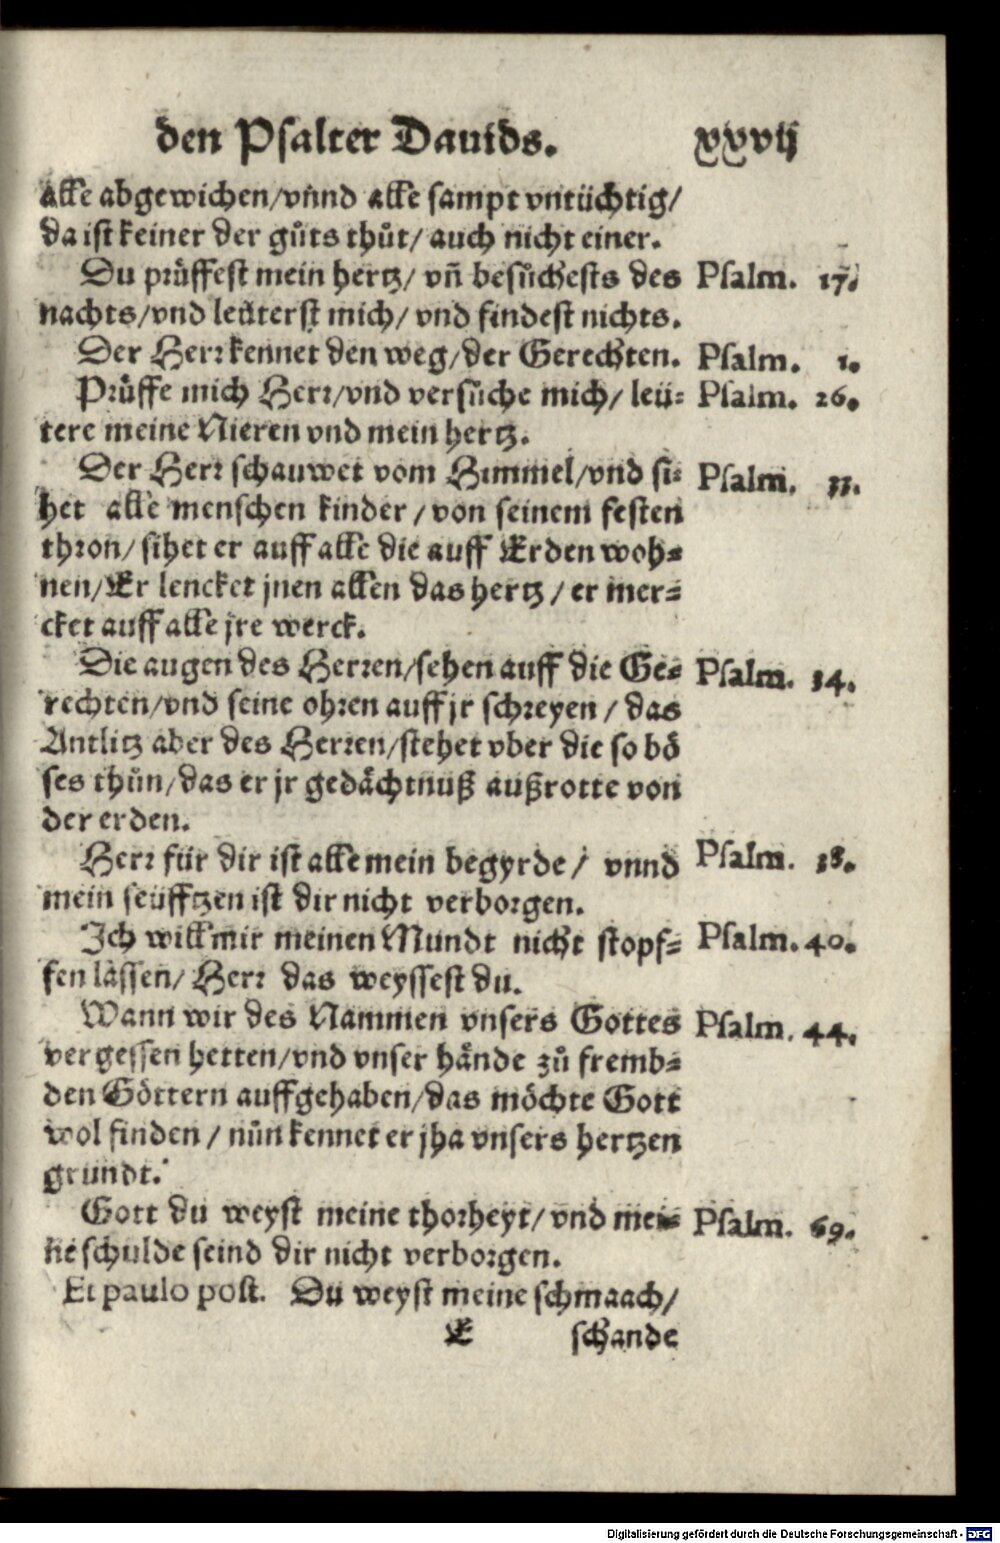 den Psalter Dauids. xxvij
alle abgewichen/vnnd alle sampt vntüchtig/
da ist keiner der gůts thůt/ auch nicht einer.
Du prüffest mein hertz/ vñ besůchests des Psalm. 17.
nachts/vnd leüterst mich/ vnd findest nichts.
Der Herr kennet den weg/der Gerechten. Psalm. 1.
Průffe mich Herr/vnd versůche mich/ leü- Psalm. 26.
tere meine Nieren vnd mein hertz.
Der Herr schauwet vom Himmel/vnd si- Psalm. 33.
het alle menschen kinder / von seinem festen
thron/ sihet er auff alle die auff Erden woh-
nen/Er lencket jnen allen das hertz / er mer-
cket auff alle jre werck.
Die augen des Herren/sehen auff die Ge- Psalm. 34.
rechten/vnd seine ohren auff jr schreyen / das
Antlitz aber des Herren/stehet vber die so bö
ses thůn/das er jr gedächtnuß außrotte von
der erden.
Herr für dir ist alle mein begyrde / vnnd Psalm. 38.
mein seüfftzen ist dir nicht verborgen.
Ich will mir meinen Mundt nicht stopf- Psalm. 40.
fen lassen/ Herr das weyssest du.
Wann wir des Nammen vnsers Gottes Psalm. 44.
vergessen hetten/vnd vnser hände zů fremb-
den Göttern auffgehaben/das möchte Gott
wol finden / nůn kennet er jha vnsers hertzen
grundt.
Gott du weyst meine thorheyt/ vnd mei- Psalm. 69.
ne schulde seind dir nicht verborgen.
Et paulo post. Du weyst meine schmaach/
E schande
Digitalisierung gefördert durch die Deutsche Forschungsgemeinschaft - DFG